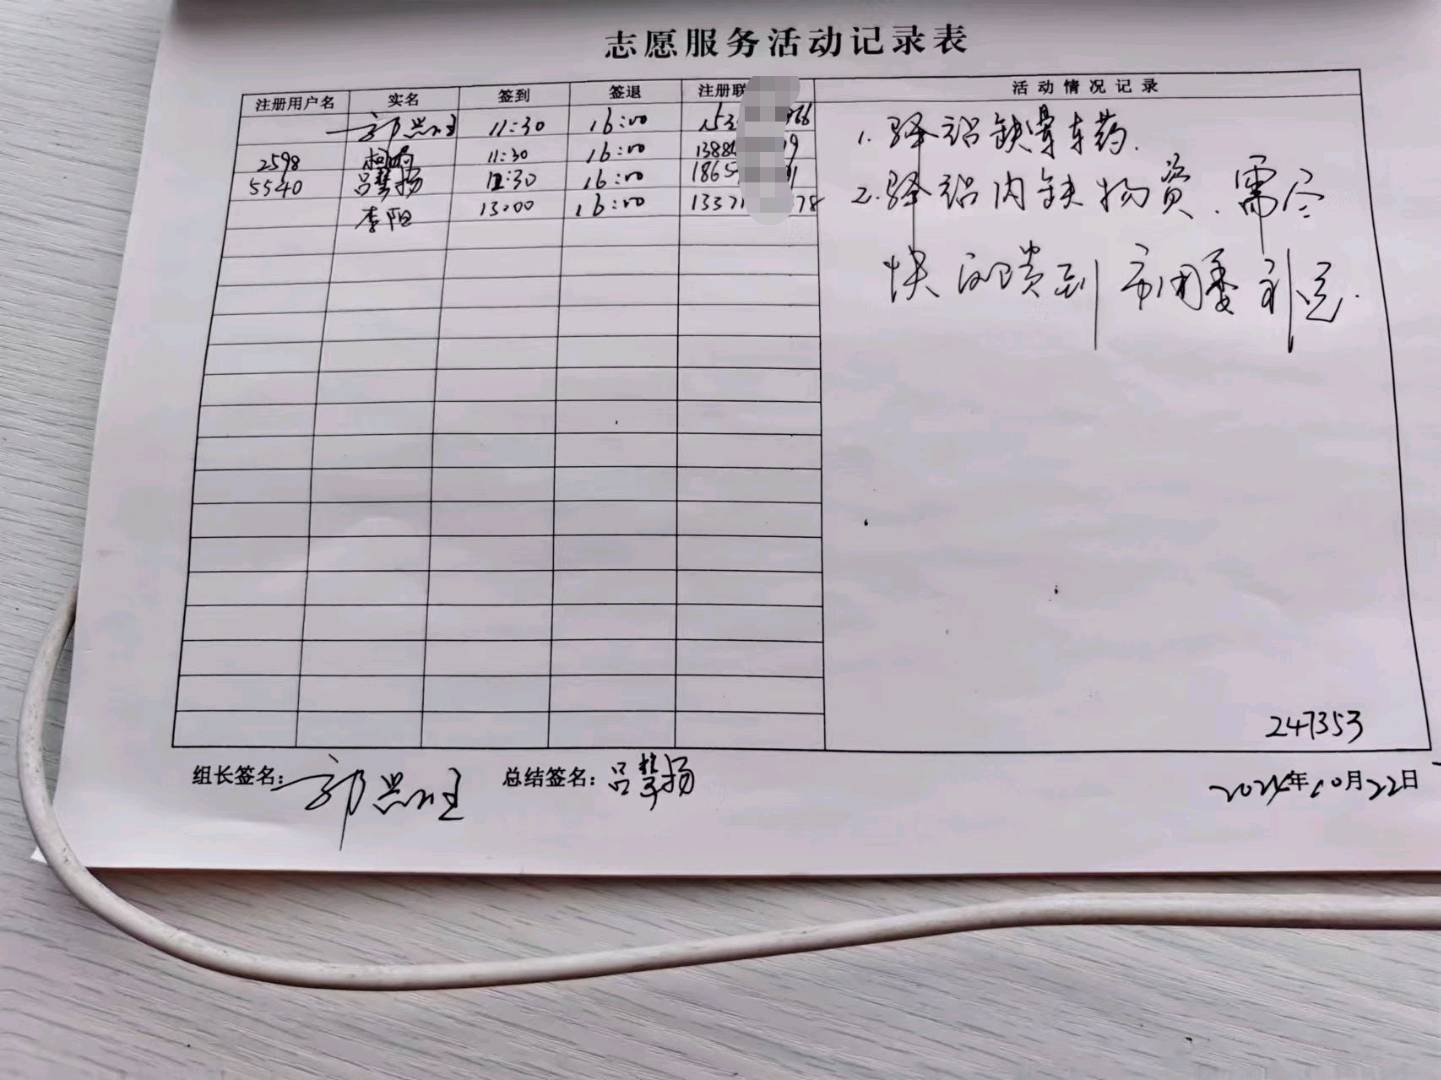 志愿服务活动记录表
注册用户名 实名 签到 签退 注册联 活动情况记录
11:30 16:00 153 66
2598 11:30 16:00 1388 9
5540 吕慧扬 12:30 16:00 1865 1
李阳 13:00 16:00 1337 78
1. 驿站缺晕车药.
2. 驿站内缺物资.需尽
快反馈到市团委补足.
247353
组长签名: 总结签名: 吕慧扬 2024年10月22日